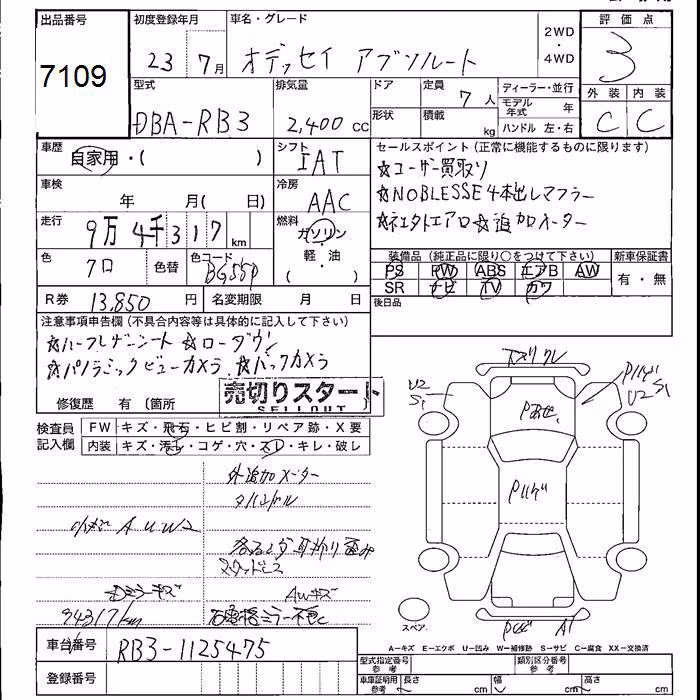 出品番号 初度登録年月 車名・グレード 2WD ・ 4WD 評価点
7109 23 7月 オデッセイ アブソルート 3
型式 排気量 ドア 定員 7人 ディーラー・並行 外装 内装
DBA-RB3 2,400cc 形状 積載 kg モデル年式 年 C C
ハンドル 左・右
車歴 自家用・( ) シフト IAT セールスポイント(正常に機能するものに限ります)
車検 年 月( 日) 冷房 AAC ☆ユーザー買取り
☆NOBLESSE4本出しマフラー
走行 9万4千317km 燃料 ガソリン・軽油( )
色 クロ 色替 色コード BG55P 装備品(純正品に限り○をつけて下さい) 新車保証書
PS PW ABS エアB AW 有・無
SR ナビ TV カワ
R券 13,850円 名変期限 月 日 後日品
注意事項申告欄(不具合内容等は具体的に記入して下さい)
☆ハーフレザーシート ☆ローダウン
☆パノラミックビューカメラ ☆バックカメラ
修復歴 有(箇所 )
売切りスタート
SELLOUT
検査員記入欄 FW キズ・飛石・ヒビ割・リペア跡・X要
内装 キズ・汚レ・コゲ・穴・スレ・キレ・破レ
外追加メーター
小キズ A U W2
Dミラーキズ AWキズ
94317km
U2 S1
U2 S1
A1
スペア
A−キズ E−エクボ U−凹み W−補修跡 S−サビ C−腐食 XX−交換済
車台番号 RB3-1125475
登録番号
型式指定番号 参考 類別区分番号 参考
車庫証明用 参考 長さ cm 幅 cm 高さ cm